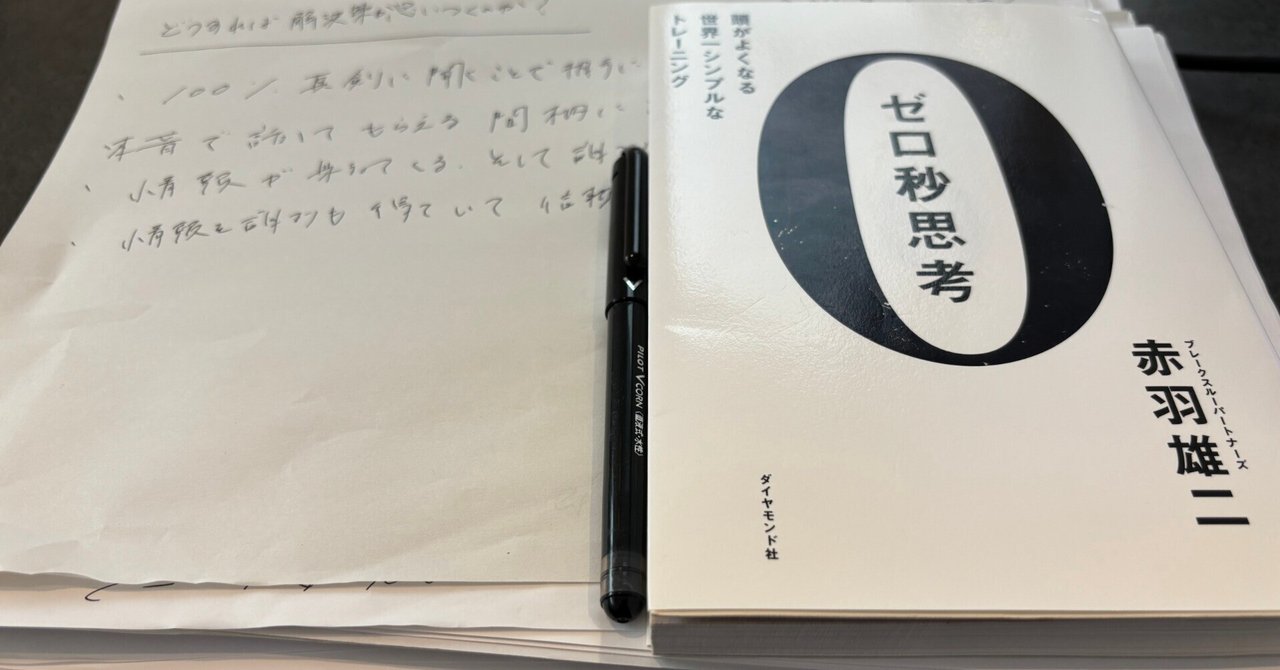 どうすれば解決策が思いつくのか?
、100% 真剣に聞くことで相手に
本音で話してもらえる 間柄に
、情報が集まってくる。そして
情報を
頭がよくなる
世界一シンプルな
トレーニング
0
ゼロ秒思考
ブレークスルーパートナーズ
赤羽雄二
ダイヤモンド社
PILOT VCORN〈直液式・水性〉